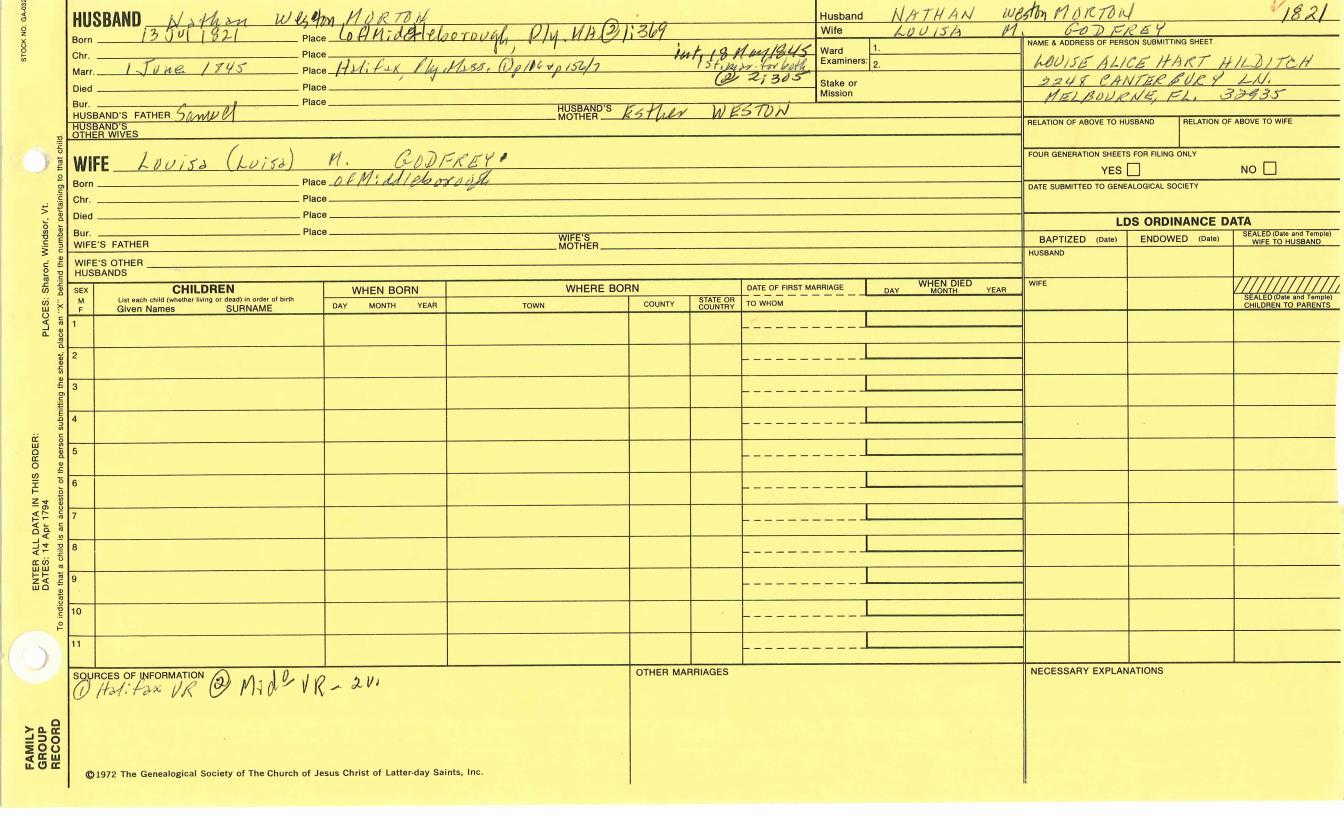 STOCK NO. GA-032
HUSBAND Nathan Weston MORTON
Born 13 Jul 1821 Place (of Middleborough, Ply. MA ② 1:369
Chr. Place int, 18 May 1845
Marr. 1 June 1845 Place Halifax, Ply. Mass. ① p106 & p156/7
Died Place @ 2:305
Bur. Place
HUSBAND'S FATHER Samuel HUSBAND'S MOTHER Esther WESTON
HUSBAND'S OTHER WIVES
WIFE Louisa (Luisa) M. GODFREY
Born Place of Middleborough
Chr. Place
Died Place
Bur. Place
WIFE'S FATHER WIFE'S MOTHER
WIFE'S OTHER HUSBANDS
Husband NATHAN Weston MORTON 1821
Wife LOUISA M. GODFREY
Ward Examiners: 1. 2.
Stake or Mission
NAME & ADDRESS OF PERSON SUBMITTING SHEET
LOUISE ALICE HART HILDITCH
2248 CANTERBURY LN.
MELBOURNE, FL. 32935
RELATION OF ABOVE TO HUSBAND RELATION OF ABOVE TO WIFE
FOUR GENERATION SHEETS FOR FILING ONLY
YES NO
DATE SUBMITTED TO GENEALOGICAL SOCIETY
LDS ORDINANCE DATA
BAPTIZED (Date) ENDOWED (Date) SEALED (Date and Temple) WIFE TO HUSBAND
HUSBAND
WIFE
SEALED (Date and Temple) CHILDREN TO PARENTS
SEX M F CHILDREN WHEN BORN WHERE BORN DATE OF FIRST MARRIAGE WHEN DIED
List each child (whether living or dead) in order of birth
Given Names SURNAME DAY MONTH YEAR TOWN COUNTY STATE OR COUNTRY TO WHOM DAY MONTH YEAR
1
2
3
4
5
6
7
8
9
10
11
SOURCES OF INFORMATION OTHER MARRIAGES NECESSARY EXPLANATIONS
① Halifax VR ② Mido VR - 2v.
©1972 The Genealogical Society of The Church of Jesus Christ of Latter-day Saints, Inc.
FAMILY GROUP RECORD
ENTER ALL DATA IN THIS ORDER:
DATES: 14 Apr 1794 PLACES: Sharon, Windsor, Vt.
To indicate that a child is an ancestor of the person submitting the sheet, place an "X" behind the number pertaining to that child.